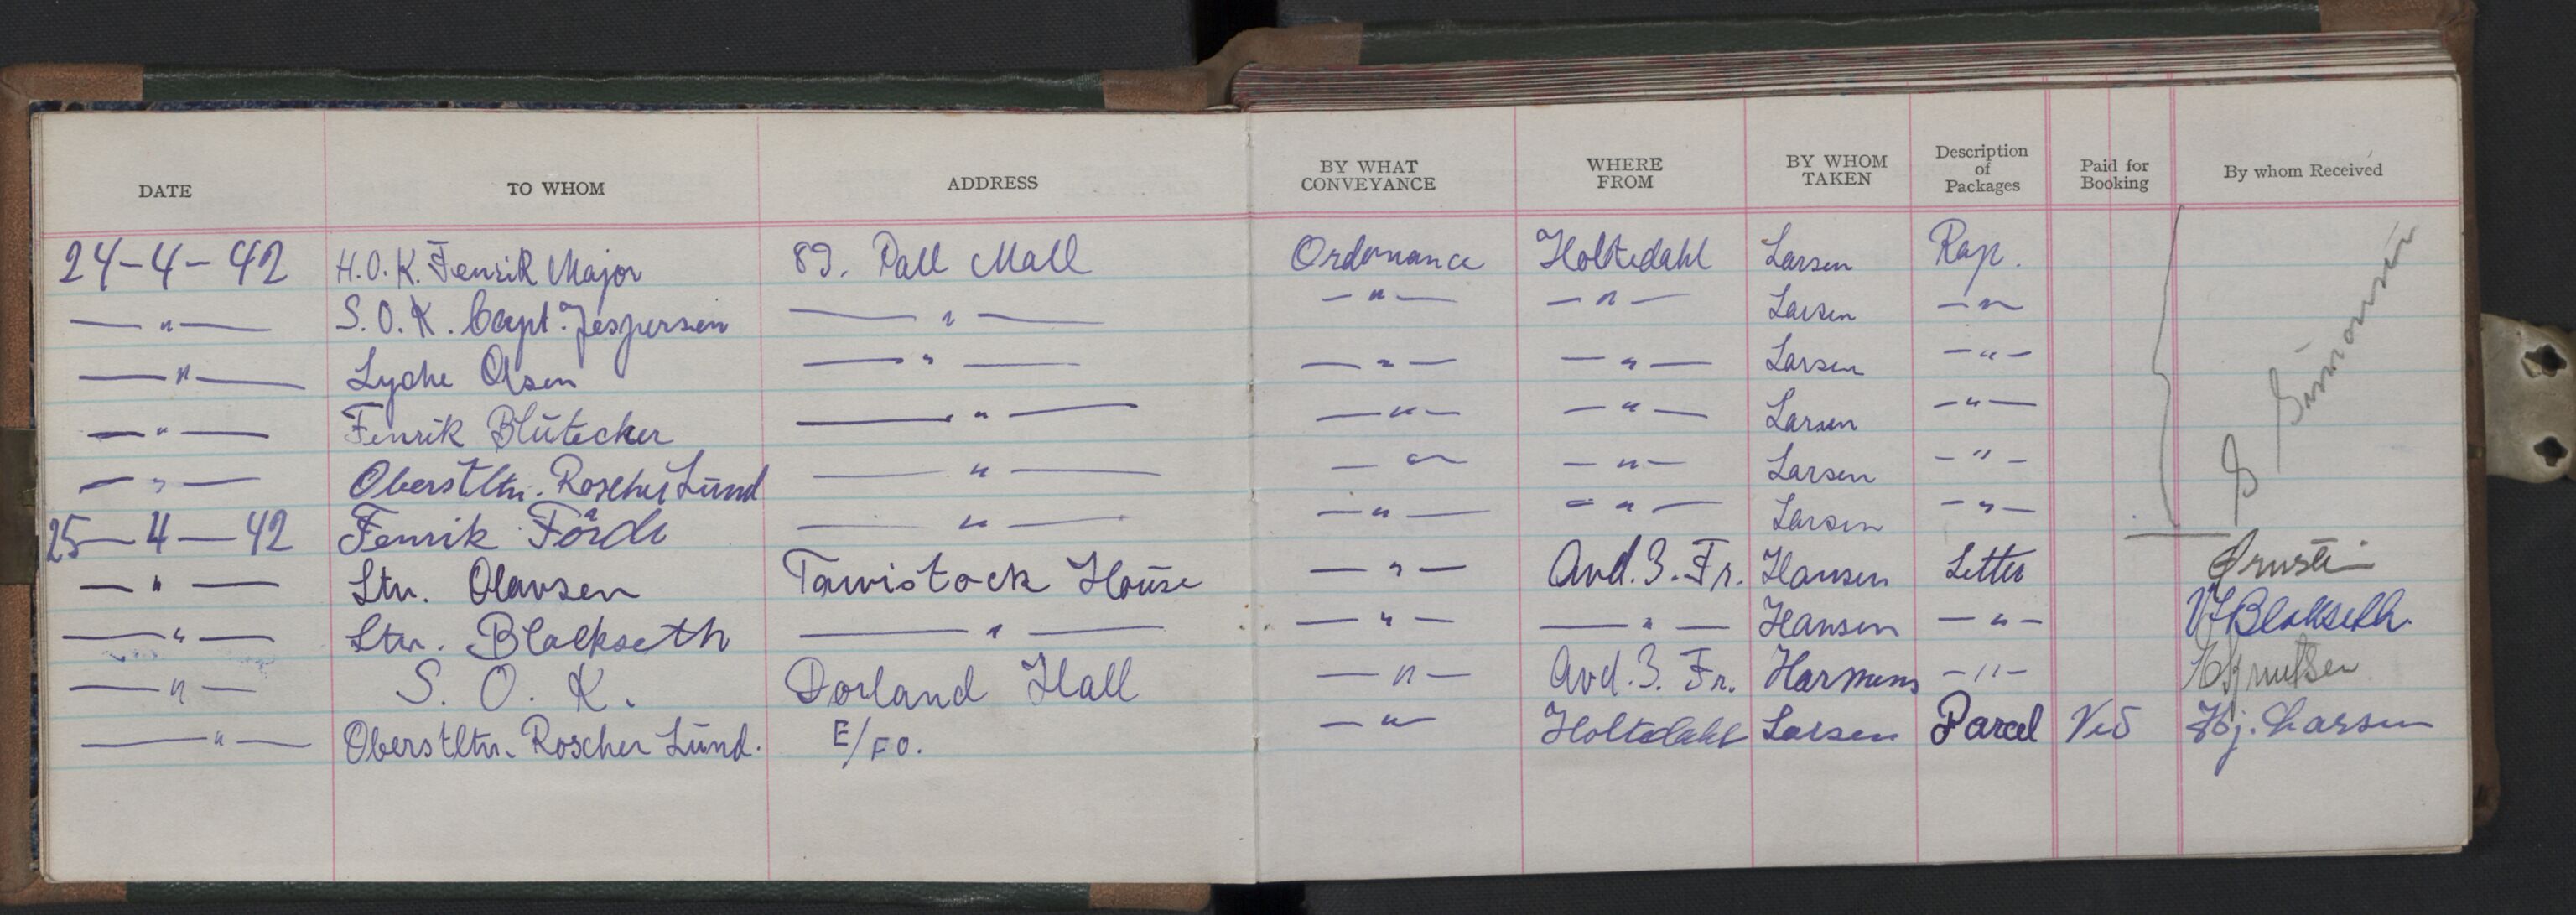 DATE TO WHOM ADDRESS BY WHAT CONVEYANCE WHERE FROM BY WHOM TAKEN Description of Packages Paid for Booking By whom Received
24-4-42 H.O.K. Fenrik Major 89. Pall Mall Ordonnance Holtedahl Larsen Rap.
—"— S.O.K. Capt. Jespersen —"— —"— —"— Larsen —"—
—"— Lyche Olsen —"— —"— —"— Larsen —"—
—"— Fenrik Blütecker —"— —"— —"— Larsen —"—
—"— Oberstltn. Roscher Lund —"— —"— —"— Larsen —"— Simonsen
25-4-42 FenrikFörde —"— —"— —"— Larsen —"—
—"— Ltn. Olavsen Tavistock House —"— Avd. 3. Fr. Hansen Letter
—"— Ltn. Blackseth —"— —"— —"— Hansen —"— Blakseth.
—"— S. O. K. Dorland Hall —"— Avd. 3. Fr. Harmens —"— Knutsen
—"— Oberstltn. Roscher Lund. E/FO. —"— Holtedahl Larsen Parcel Hj. Larsen